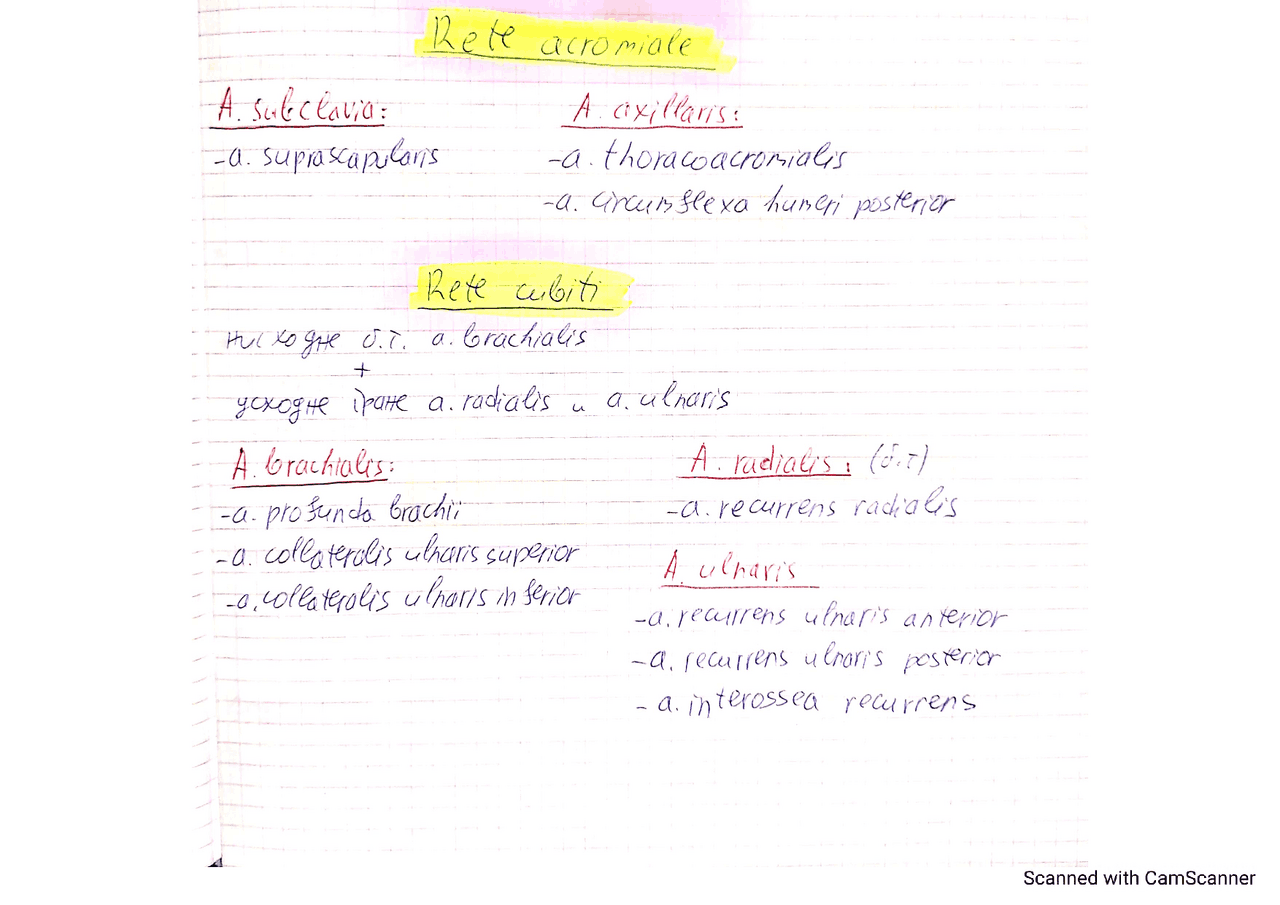 Rete acromiale
A. subclavia:
-a. suprascapularis
A. axillaris:
-a. thoracoacromialis
-a. circumflexa humeri posterior
Rete cubiti
нисходне б.т. a. brachialis
+
усходне гране a. radialis и a. ulnaris
A. brachialis:
-a. profunda brachii
-a. collateralis ulnaris superior
-a. collateralis ulnaris inferior
A. radialis: (б.т)
-a. recurrens radialis
A. ulnaris
-a. recurrens ulnaris anterior
-a. recurrens ulnaris posterior
- a. interossea recurrens
Scanned with CamScanner